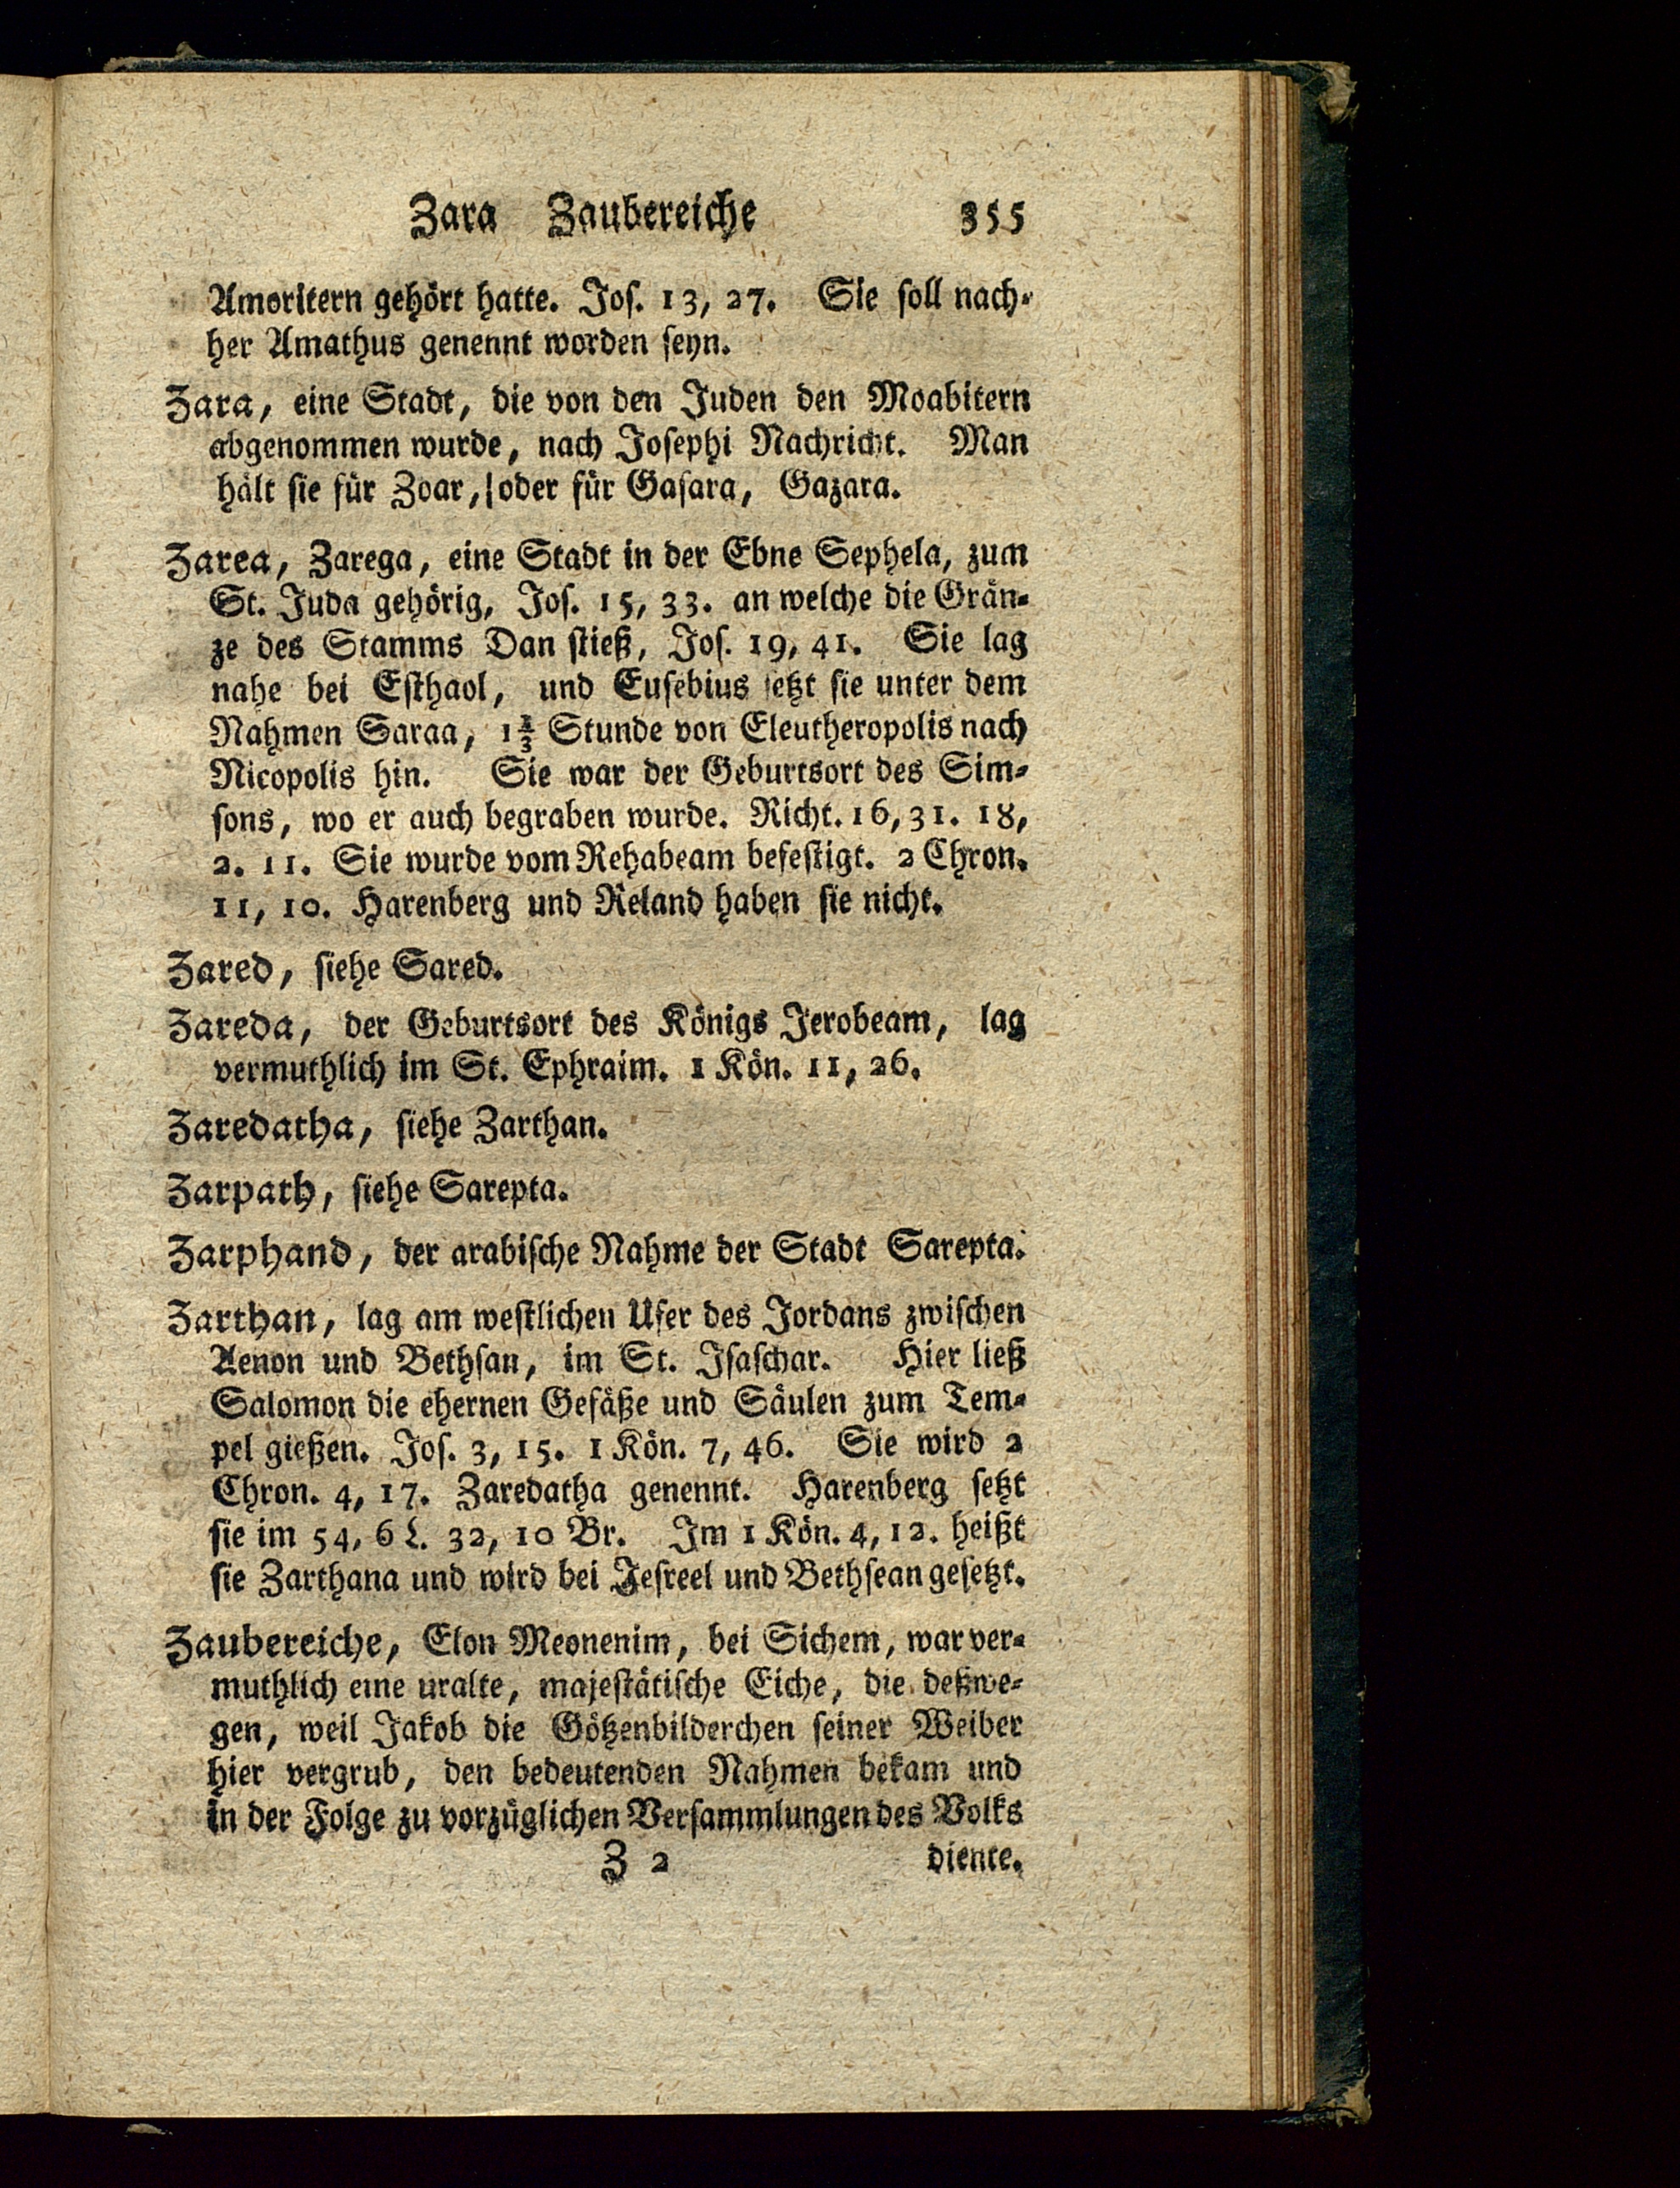 Zara Zaubereiche 355
Amoritern gehört hatte. Joſ. 13, 27. Sie ſoll nach-
her Amathus genennt worden ſeyn.
Zara, eine Stadt, die von den Juden den Moabitern
abgenommen wurde, nach Joſephi Nachricht. Man
hält ſie für Zoar, oder für Gaſara, Gazara.
Zarea, Zarega, eine Stadt in der Ebne Sephela, zum
St. Juda gehörig, Joſ. 15, 33. an welche die Grän-
ze des Stamms Dan ſtieß, Joſ. 19, 41. Sie lag
nahe bei Eſthaol, und Euſebius ſetzt ſie unter dem
Nahmen Saraa, 1⅔ Stunde von Eleutheropolis nach
Nicopolis hin. Sie war der Geburtsort des Sim-
ſons, wo er auch begraben wurde. Richt. 16, 31. 18,
2. 11. Sie wurde vom Rehabeam befeſtigt. 2 Chron.
11, 10. Harenberg und Reland haben ſie nicht.
Zared, ſiehe Sared.
Zareda, der Geburtsort des Königs Jerobeam, lag
vermuthlich im St. Ephraim. 1 Kön. 11, 26.
Zaredatha, ſiehe Zarthan.
Zarpath, ſiehe Sarepta.
Zarphand, der arabiſche Nahme der Stadt Sarepta.
Zarthan, lag am weſtlichen Ufer des Jordans zwiſchen
Aenon und Bethſan, im St. Iſaſchar. Hier ließ
Salomon die ehernen Gefäße und Säulen zum Tem-
pel gießen. Joſ. 3, 15. 1 Kön. 7, 46. Sie wird 2
Chron. 4, 17. Zaredatha genennt. Harenberg ſetzt
ſie im 54, 6 L. 32, 10 Br. Im 1 Kön. 4, 12. heißt
ſie Zarthana und wird bei Jeſreel und Bethſean geſetzt.
Zaubereiche, Elon Meonenim, bei Sichem, war ver-
muthlich eine uralte, majeſtätiſche Eiche, die deßwe-
gen, weil Jakob die Götzenbilderchen ſeiner Weiber
hier vergrub, den bedeutenden Nahmen bekam und
in der Folge zu vorzüglichen Verſammlungen des Volks
Z 2 diente.